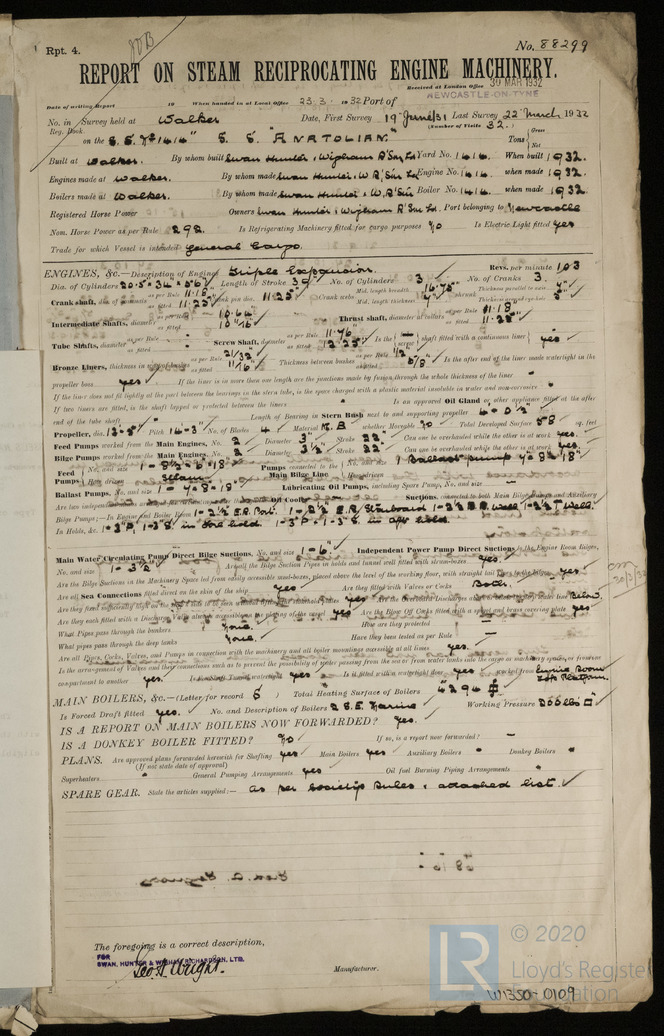 Rpt. 4.
No. 88299
REPORT ON STEAM RECIPROCATING ENGINE MACHINERY.
Received at London Office 30 MAR 1932
Date of writing Report 19 When handed in at Local Office 23.3.1932 Port of NEWCASTLE-ON-TYNE
No. in Survey held at Walker Date, First Survey 19 June 31 Last Survey 22 March 1932
Reg. Book. (Number of Visits 32.)
on the S.S. No 1414 S.S. "ANATOLIAN." Tons Gross Net
Built at Walker. By whom built Swan Hunter & Wigham R'Son Ld Yard No. 1414. When built 1932.
Engines made at Walker. By whom made Swan Hunter & W R'Son Ld Engine No. 1414. when made 1932.
Boilers made at Walker. By whom made Swan Hunter & W R'Son Boiler No. 1414. when made 1932.
Registered Horse Power Owners Swan Hunter & Wigham R'Son Ld. Port belonging to Newcastle
Nom. Horse Power as per Rule 292. Is Refrigerating Machinery fitted for cargo purposes No Is Electric Light fitted yes
Trade for which Vessel is intended General Cargo.
ENGINES, &c.—Description of Engines Triple Expansion. Revs. per minute 103
Dia. of Cylinders 20.5" 34" 56" Length of Stroke 39 No. of Cylinders 3 No. of Cranks 3.
Crank shaft, dia. of journals as per Rule 11.18 as fitted 11.25 Crank pin dia. 11.25" Crank webs Mid. length breadth 16.75" Mid. length thickness 7" shrunk Thickness parallel to axis 7" Thickness around eye-hole 5"
Intermediate Shafts, diameter as per Rule 10.64 as fitted 10 7/16 Thrust shaft, diameter at collars as per Rule 11.18 as fitted 11.25"
Tube Shafts, diameter as per Rule as fitted Screw Shaft, diameter as per Rule 11.76 as fitted 12.25" Is the shaft fitted with a continuous liner yes
Bronze Liners, thickness in way of bushes as per Rule 21/32 as fitted 11/16 Thickness between bushes as per Rule 1/2 as fitted 5/8" Is the after end of the liner made watertight in the
propeller boss yes If the liner is in more than one length are the junctions made by fusion through the whole thickness of the liner
If the liner does not fit tightly at the part between the bearings in the stern tube, is the space charged with a plastic material insoluble in water and non-corrosive
If two liners are fitted, is the shaft lapped or protected between the liners Is an approved Oil Gland or other appliance fitted at the after
end of the tube shaft Length of Bearing in Stern Bush next to and supporting propeller 4-0 1/2"
Propeller, dia. 13-8" Pitch 14-3" No. of Blades 4 Material M.B whether Moveable No Total Developed Surface 58 sq. feet
Feed Pumps worked from the Main Engines, No. 2 Diameter 3" Stroke 22" Can one be overhauled while the other is at work yes.
Bilge Pumps worked from the Main Engines, No. 2 Diameter 3 1/2" Stroke 22" Can one be overhauled while the other is at work yes.
Feed Pumps No. and size 1-8 1/2 × 6 × 18" How driven Steam Pumps connected to the Main Bilge Line No. and size 1 Ballast pump 7×8×18" How driven
Ballast Pumps, No. and size 1-7×8×18" Lubricating Oil Pumps, including Spare Pump, No. and size —
Are two independent Oil Cooler Suctions, connected to both Main Bilge Pumps and Auxiliary
Bilge Pumps;—In Engine and Boiler Room 1-2 1/2" E.R. Port. 1-2 1/2" E.R. Starboard
In Holds, &c. 1-3"P, 1-3"S in Fore hold. 1-3"P & 1-3"S in aft hold
Main Water Circulating Pump Direct Bilge Suctions, No. and size 1-6" Independent Power Pump Direct Suctions to the Engine Room Bilges,
No. and size 1-3 1/2" Are all the Bilge Suction Pipes in holds and tunnel well fitted with strum-boxes yes
Are the Bilge Suctions in the Machinery Space led from easily accessible mud-boxes, placed above the level of the working floor, with straight tail pipes to the bilges yes
Are all Sea Connections fitted direct on the skin of the ship yes Are they fitted with Valves or Cocks Both.
Below.
Are they each fitted with a Discharge Valve always accessible on the plating of the vessel yes Are the Blow Off Cocks fitted with a spigot and brass covering plate yes
What Pipes pass through the bunkers None. How are they protected
What pipes pass through the deep tanks None. Have they been tested as per Rule
Are all Pipes, Cocks, Valves, and Pumps in connection with the machinery and all boiler mountings accessible at all times yes.
Is the arrangement of Valves and their connections such as to prevent the possibility of water passing from the sea or from water tanks into the cargo or machinery spaces, or from one
compartment to another yes. Is the Shaft Tunnel watertight yes Is it fitted with a watertight door yes worked from Engine Room Top Platform.
MAIN BOILERS, &c.—(Letter for record S) Total Heating Surface of Boilers 4294
Is Forced Draft fitted yes. No. and Description of Boilers 2 S.E. Marine Working Pressure 200 lbs
IS A REPORT ON MAIN BOILERS NOW FORWARDED? yes.
IS A DONKEY BOILER FITTED? No If so, is a report now forwarded?
PLANS. Are approved plans forwarded herewith for Shafting yes Main Boilers yes Auxiliary Boilers Donkey Boilers
(If not state date of approval)
Superheaters General Pumping Arrangements yes Oil fuel Burning Piping Arrangements
SPARE GEAR. State the articles supplied:— As per Society's Rules & attached list.
The foregoing is a correct description,
FOR
SWAN, HUNTER & WIGHAM RICHARDSON, LTD.
Geo. F. Wright. Manufacturer.
© 2020
LR Lloyd's Register
Foundation
W1350-0109